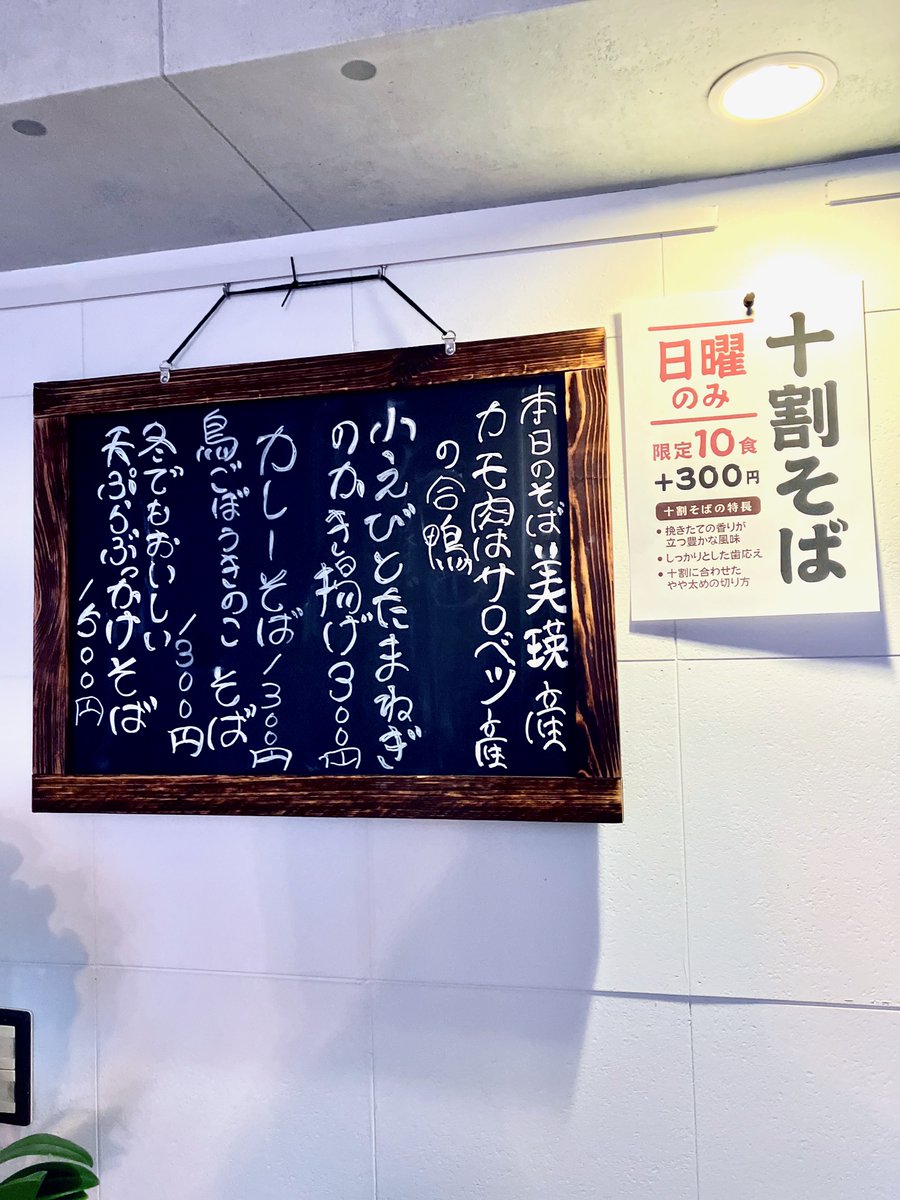 本日のそばは美瑛産
カモ肉はサロベツ産
の合鴨
小えびとたまねぎ
のかき揚げ300円
カレーそば1300円
鳥ごぼうきのこそば
1300円
冬でもおいしい
天ぷらぶっかけそば
1500円
十割そば
日曜
のみ
限定10食
+300円
十割そばの特長
• 挽きたての香りが
立つ豊かな風味
• しっかりとした歯応え
• 十割に合わせた
やや太めの切り方